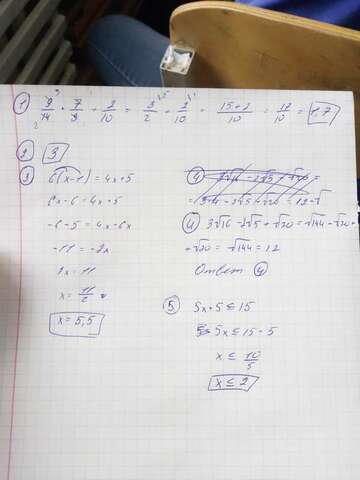 ① 9/14 * 7/3 + 2/10 = 3/2 + 2/10 = 15+2/10 = 17/10 = 1,7
② 3
③ 6(x-1) = 4x+5
6x-6 = 4x+5
-6-5 = 4x-6x
-11 = -2x
2x = 11
x = 11/2
x = 5,5
④ 3√16 - 2√5 + √20 = √144 - √20 +
+ √20 = √144 = 12
Ответ ④
5. 5x+5 ≤ 15
5x ≤ 15-5
x ≤ 10/5
x ≤ 2